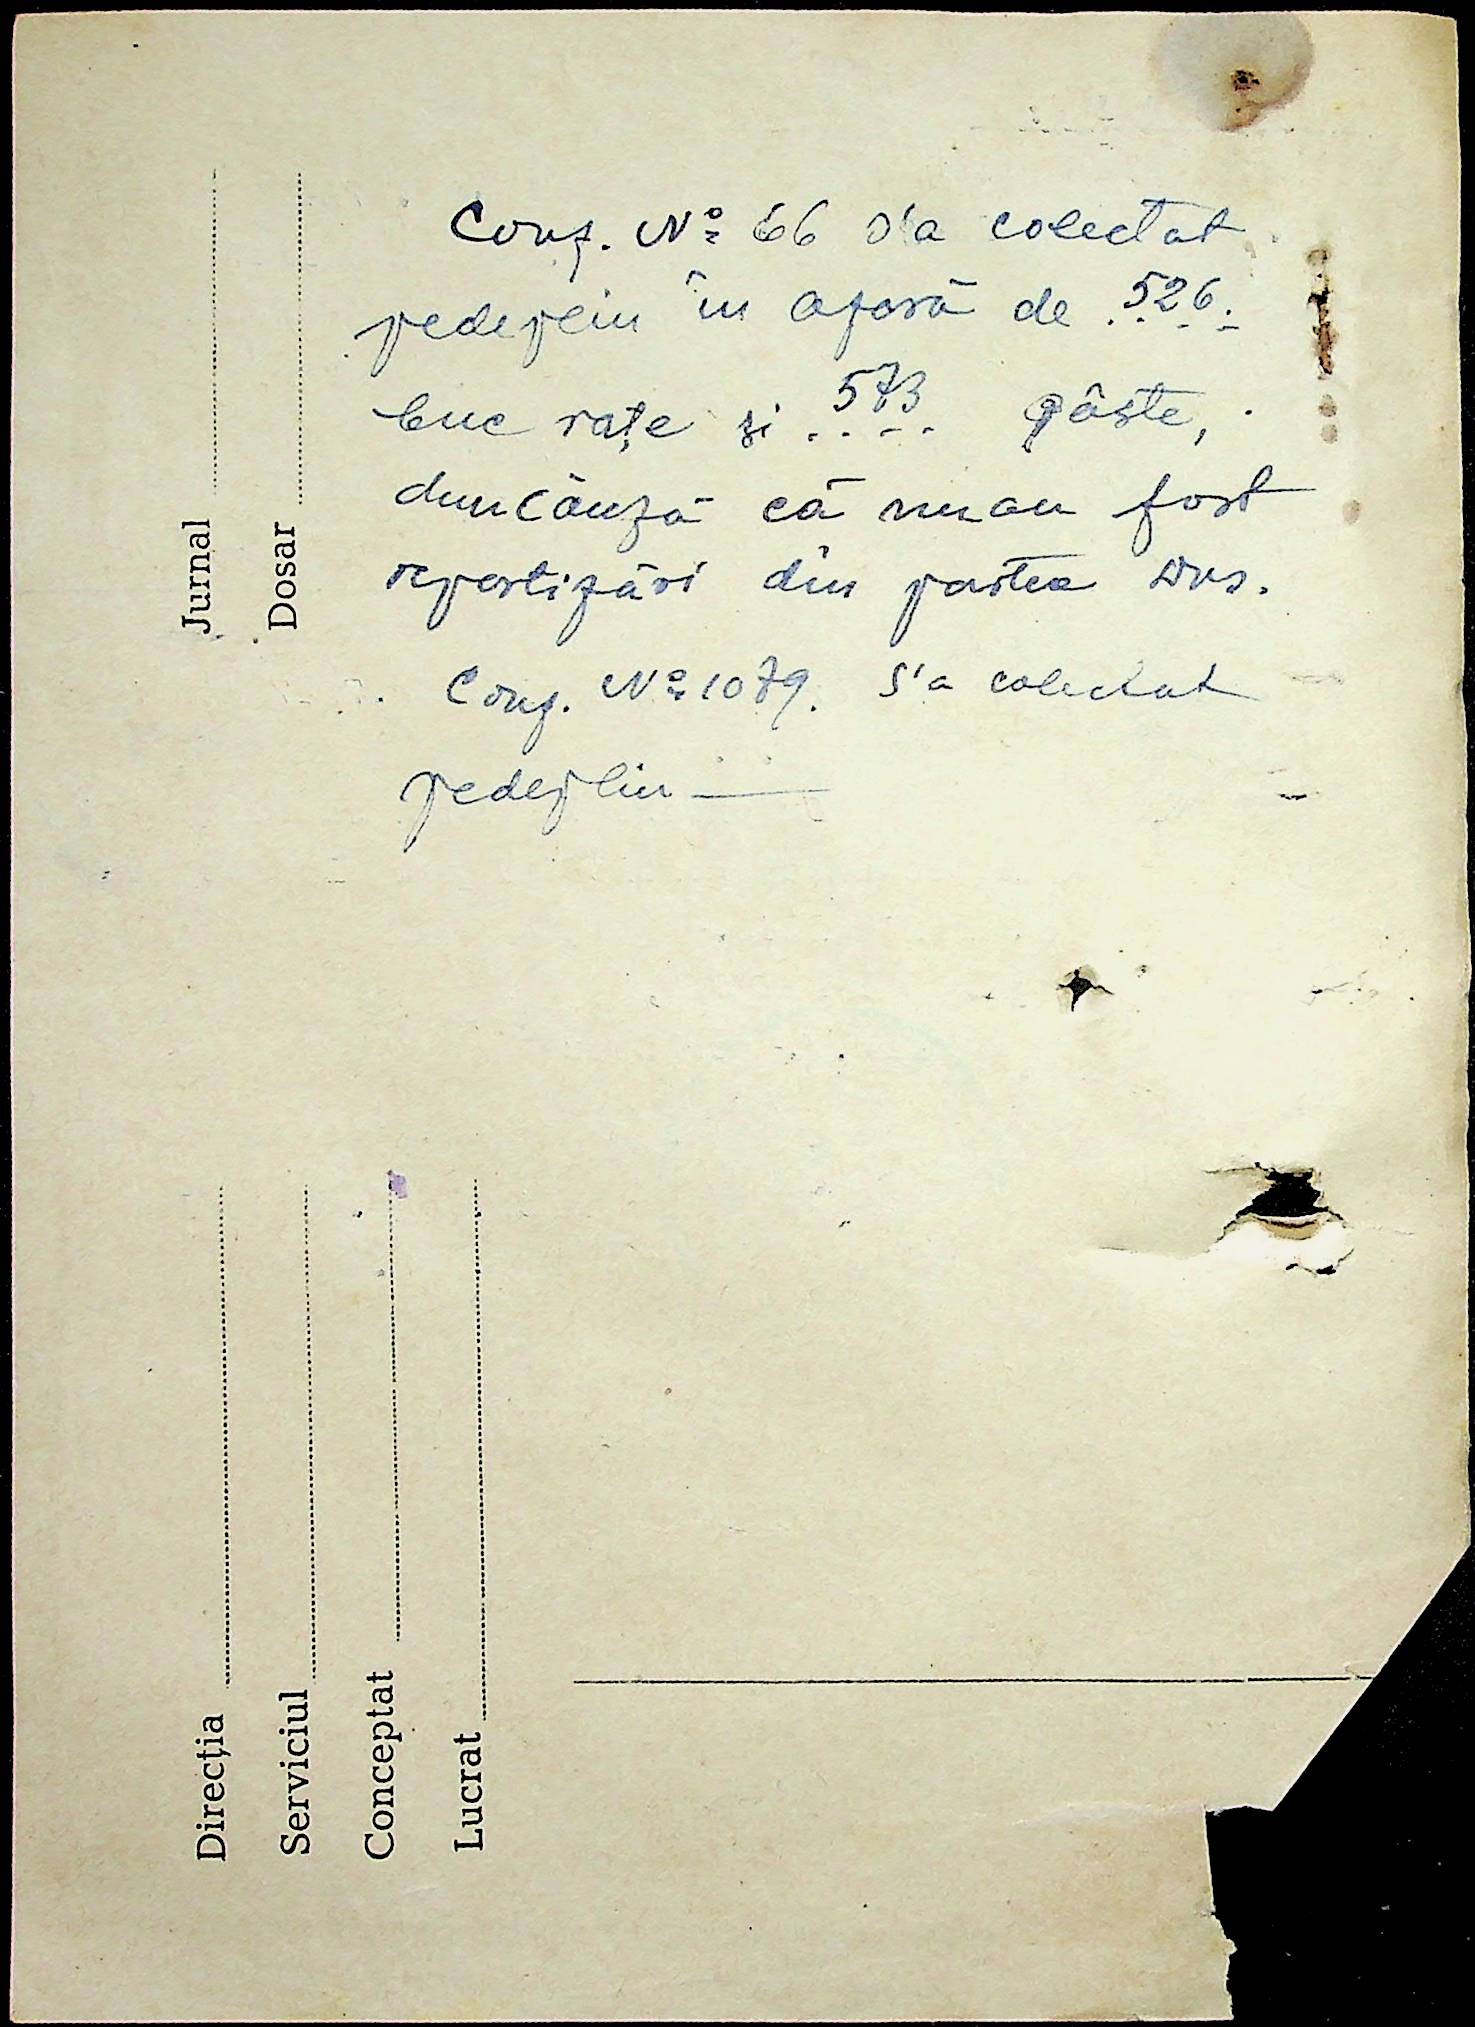 Conf. Nº 66 s'a colectat
pedeplin în afară de 526
buc rațe și 573 gâște,
din cauză că nu au fost
repartizări din partea Dvs.
Conf. Nº 1079. S'a colectat
pedeplin —
Jurnal
Dosar
Direcția
Serviciul
Conceptat
Lucrat